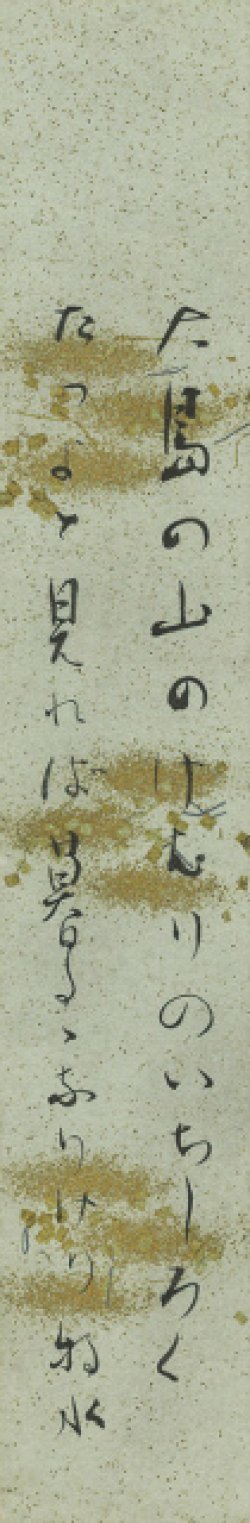 大島の山のけむりのいちしろく
たつよと見れば暮るゝなりけり 牧水